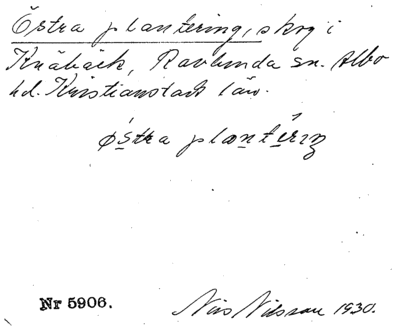 Östra plantering, skog i
Knäbäck, Ravlunda sn. Albo
hd. Kristianstads län.
østra plantērıŋ
Nr 5906.
Nils Nilsson 1930.